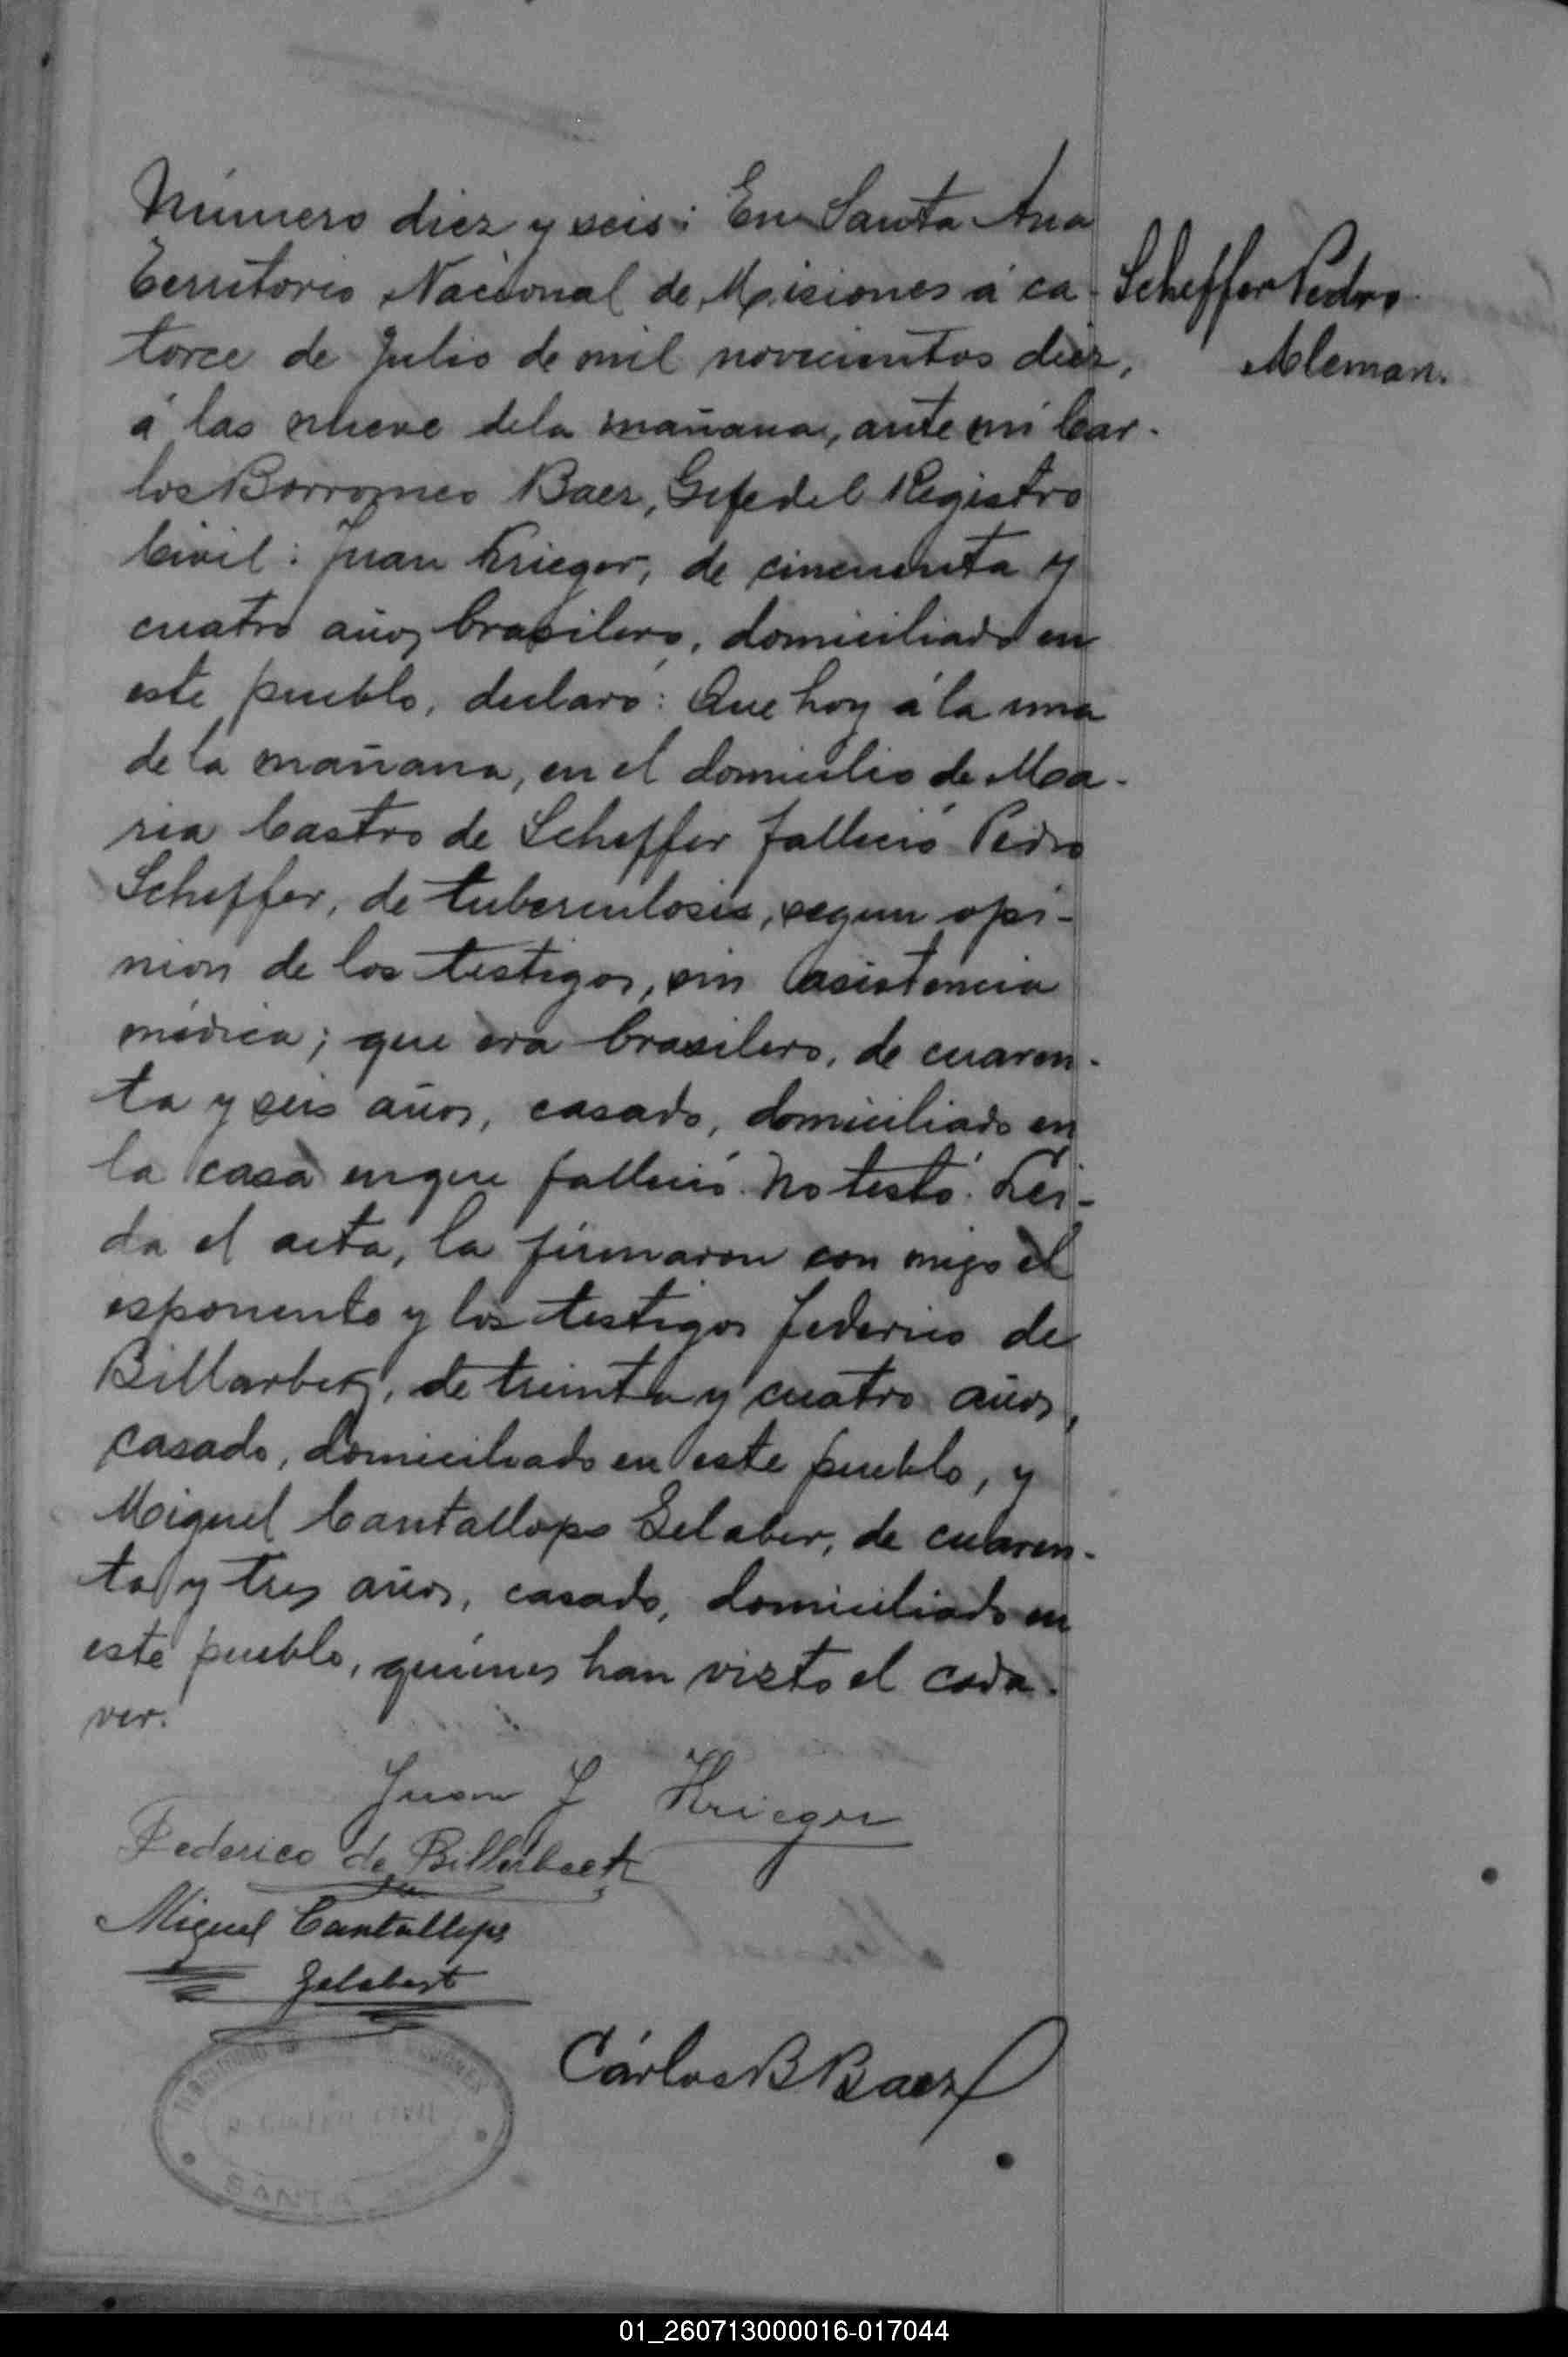 Número diez y seis: En Santa Ana
Territorio Nacional de Misiones á ca-
torce de Julio de mil novecientos diez,
á las nueve dela mañana, ante mi Car-
los Borromeo Baez, Gefe del Registro
Civil: Juan Krieger, de cincuenta y
cuatro años, brasilero, domiciliado en
este pueblo, declaró: Que hoy á la una
de la mañana, en el domicilio de Ma-
ria Castro de Scheffer falleció Pedro
Scheffer, de tuberculosis, segun opi-
nion de los testigos, sin asistencia
médica; que era brasilero, de cuaren-
ta y seis años, casado, domiciliado en
la casa en que falleció. No testó. Lei-
da el acta, la firmaron con migo el
esponente y los testigos Federico de
Billarbek, de treinta y cuatro años,
casado, domiciliado en este pueblo, y
Miguel Cantallops Gelaber, de cuaren-
ta y tres años, casado, domiciliado en
este pueblo, quiénes han visto el cada-
ver.
Scheffer Pedro
Aleman.
Juan J Krieger
Federico de Billerbeck
Miguel Cantallops
Gelabert
Cárlos B Baez
REGISTRO CIVIL
SANTA
01_260713000016-017044